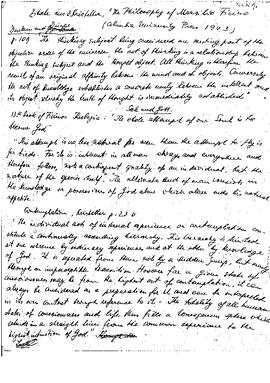 Kristeller "The Philosophy of Marsilio Ficino"
(Columbia University Press 1943)
p.109 "The thinking subject being conceived as moving part of the
objective order of the universe the act of thinking is a relationship between
the thinking subject and the thought object. All thinking is therefore the
result of an original affinity between the mind and its objects. Conversely
the act of knowledge establishes a concrete unity between the intellect and
its object whereby the truth of thought is immediately established."
Soul and God.
Book of Ficino's Theologia: "The whole attempt of our Soul is to
become God"
"This attempt is no less natural for men than the attempt to fly is
for birds. For it is inherent in all men always and everywhere and
therefore follows not a contingent quality of an individual, but the
nature of the species itself. The ultimate end of man consists in
the knowledge or possession of God alone which alone ends his natural
appetite."
Contemplation, Kristeller p.230
The individual acts of internal experience or contemplation
constitute a continually ascending hierarchy. This hierarchy is limited
at one extreme by ordinary experience and at the other by knowledge
of God. It is separated from these not by a sudden jump, but only
through an imperceptible transition. However far a given state of
consciousness may be from the highest act of contemplation, it can
always be considered as a preparation for it and can be interpreted
in its own content through reference to it. The totality of all human
states of consciousness and life thus fills a homogeneous sphere which
leads in a straight line from the common experience to the
highest intuition of God."